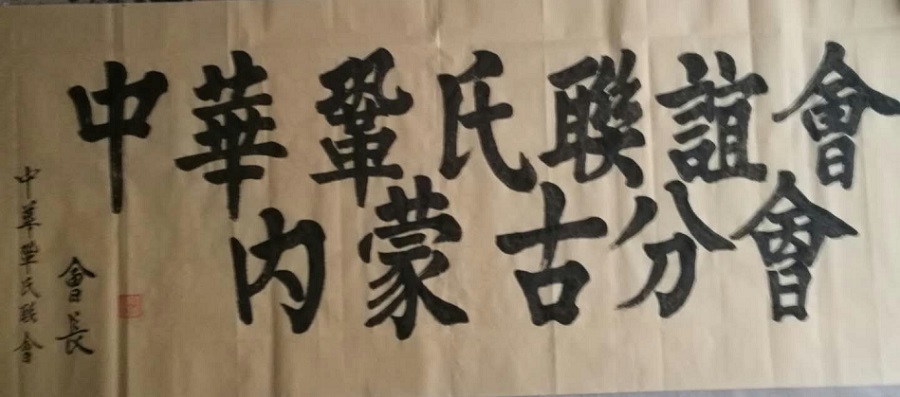 中華鞏氏聯誼會
內蒙古分會
中華鞏氏聯會
會長